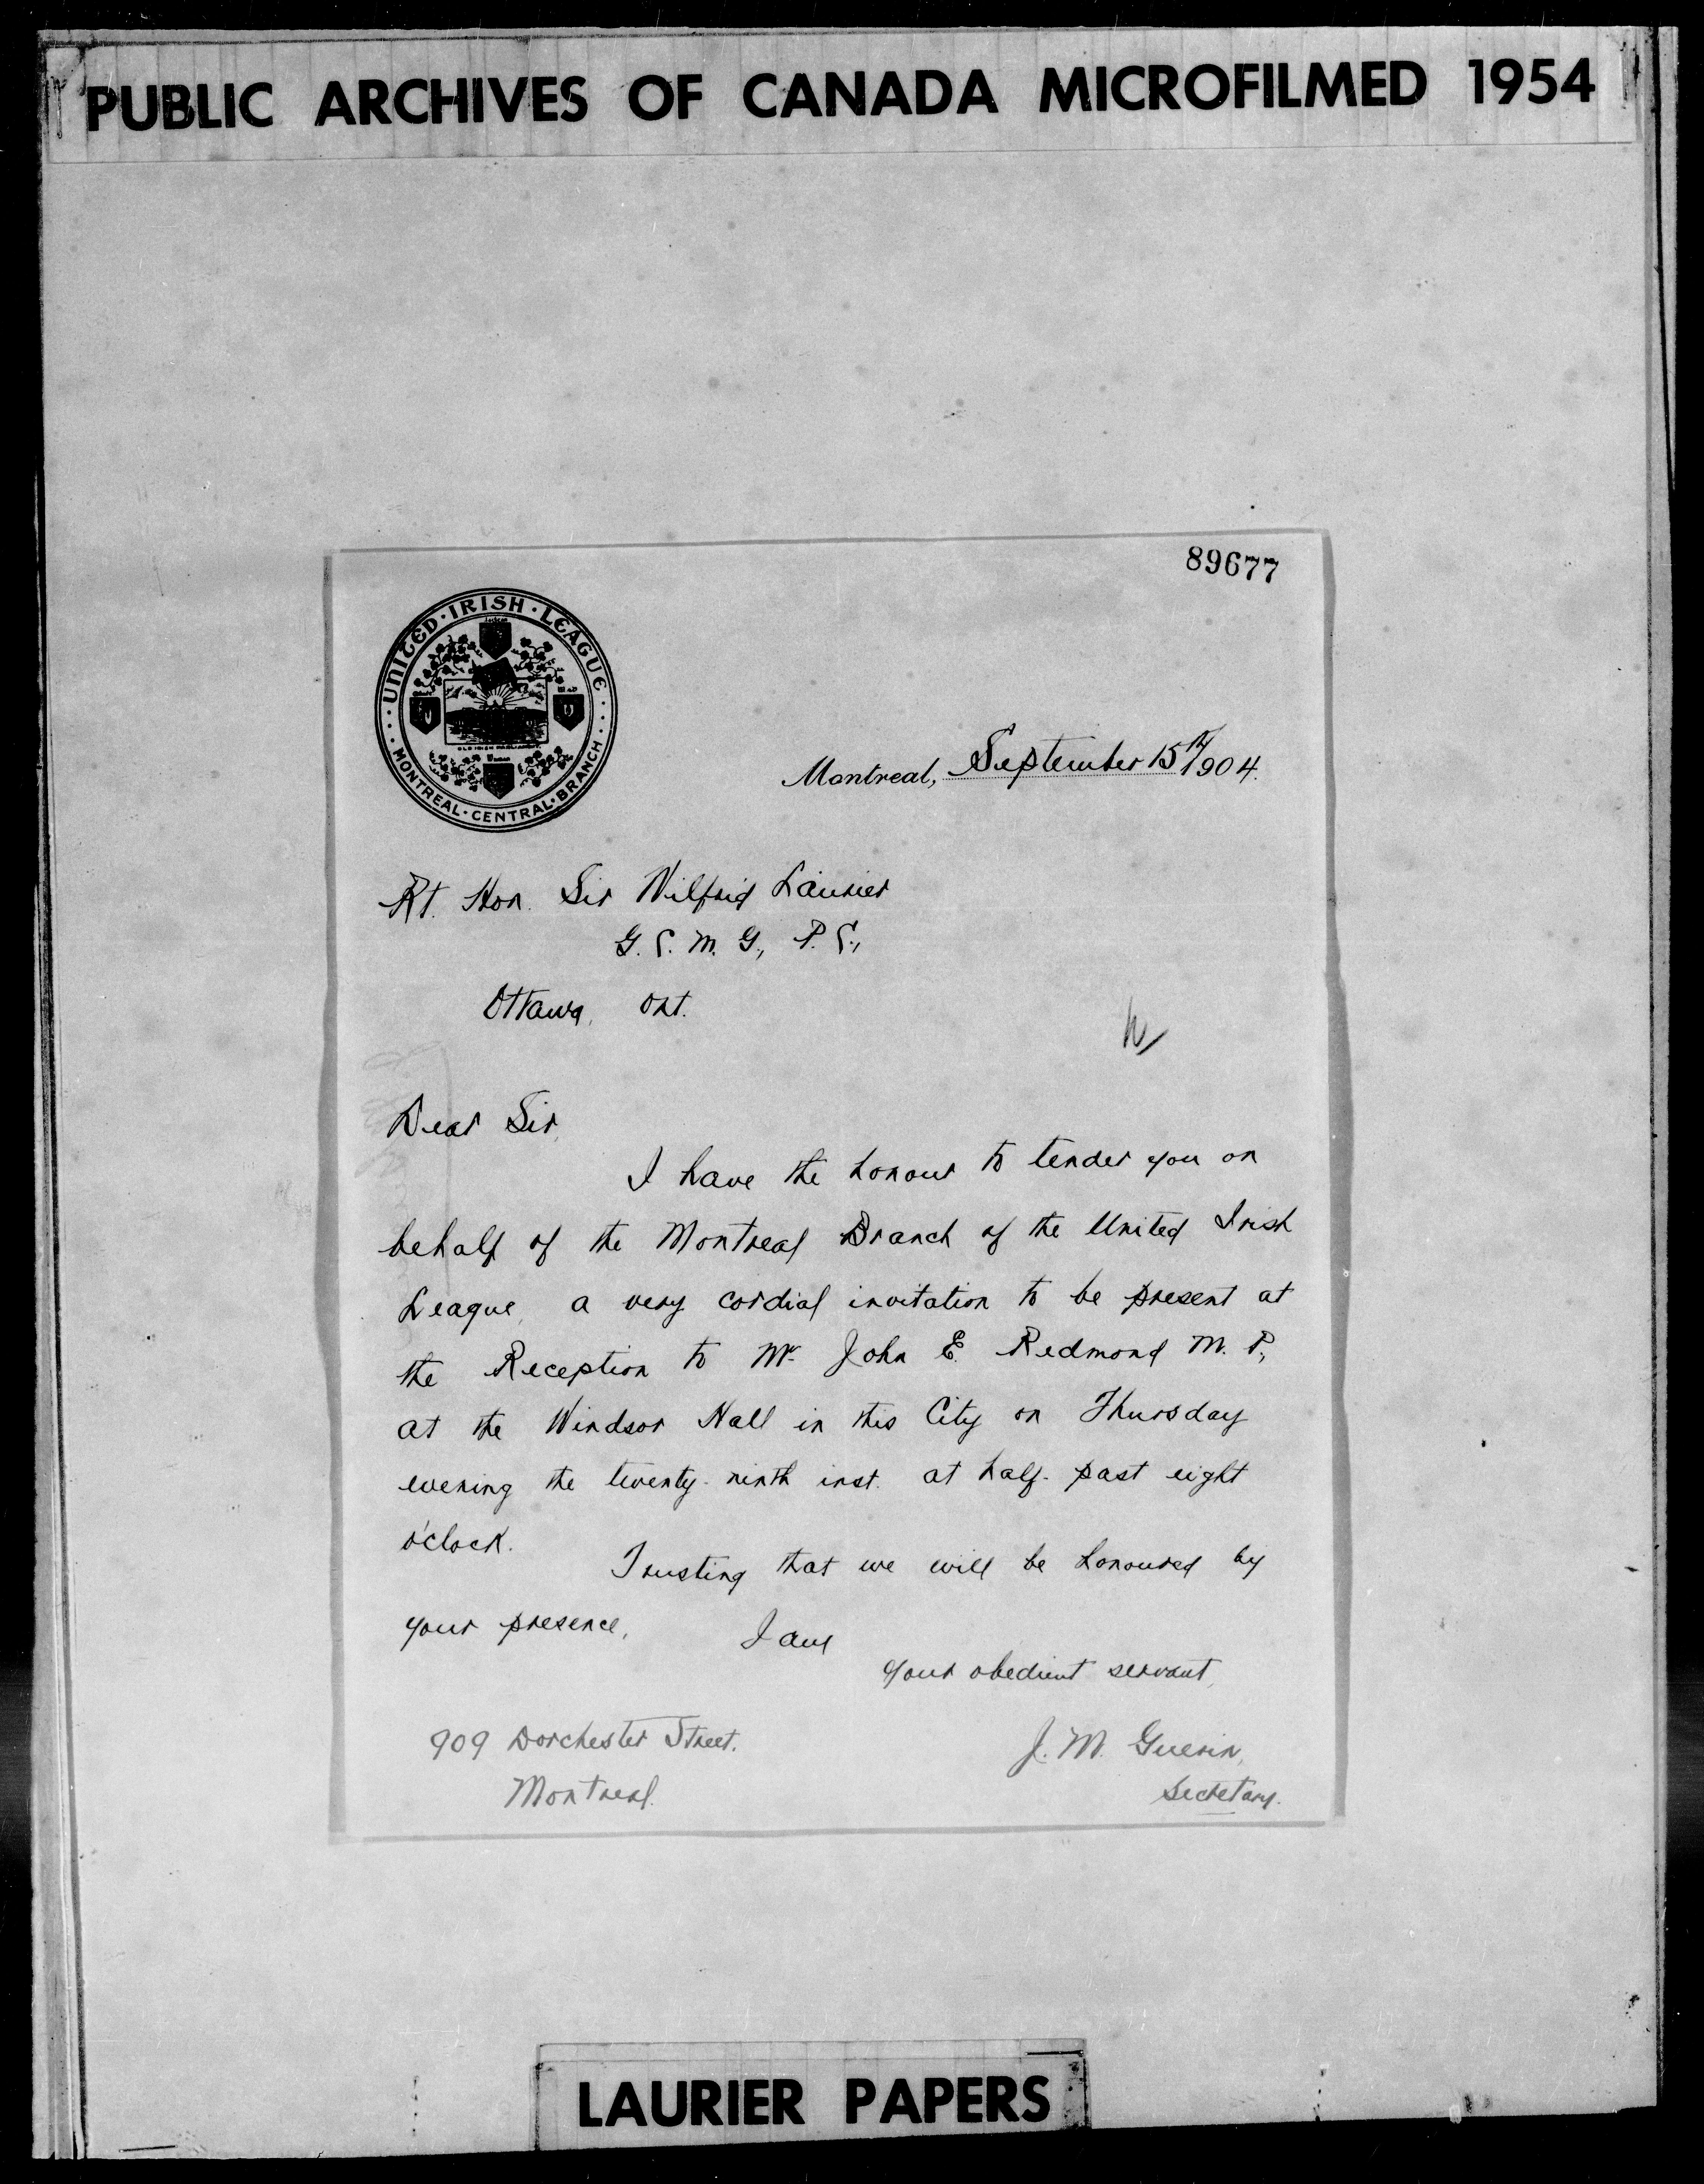 PUBLIC ARCHIVES OF CANADA MICROFILMED 1954
89677
UNITED · IRISH · LEAGUE
OLD IRISH PARLIAMENT
MONTREAL · CENTRAL · BRANCH
Montreal, September 15th 1904.
Rt. Hon. Sir Wilfrid Laurier
G. C. M. G., P. C.,
Ottawa, Ont.
Dear Sir,
I have the honour to tender you on
behalf of the Montreal Branch of the United Irish
League, a very cordial invitation to be present at
the Reception to Mr. John E. Redmond M. P.,
at the Windsor Hall in this City on Thursday
evening the twenty-ninth inst. at half-past eight
o'clock.
Trusting that we will be honoured by
your presence,
I am
your obedient servant,
J. M. Guerin,
Secretary.
909 Dorchester Street.
Montreal.
LAURIER PAPERS